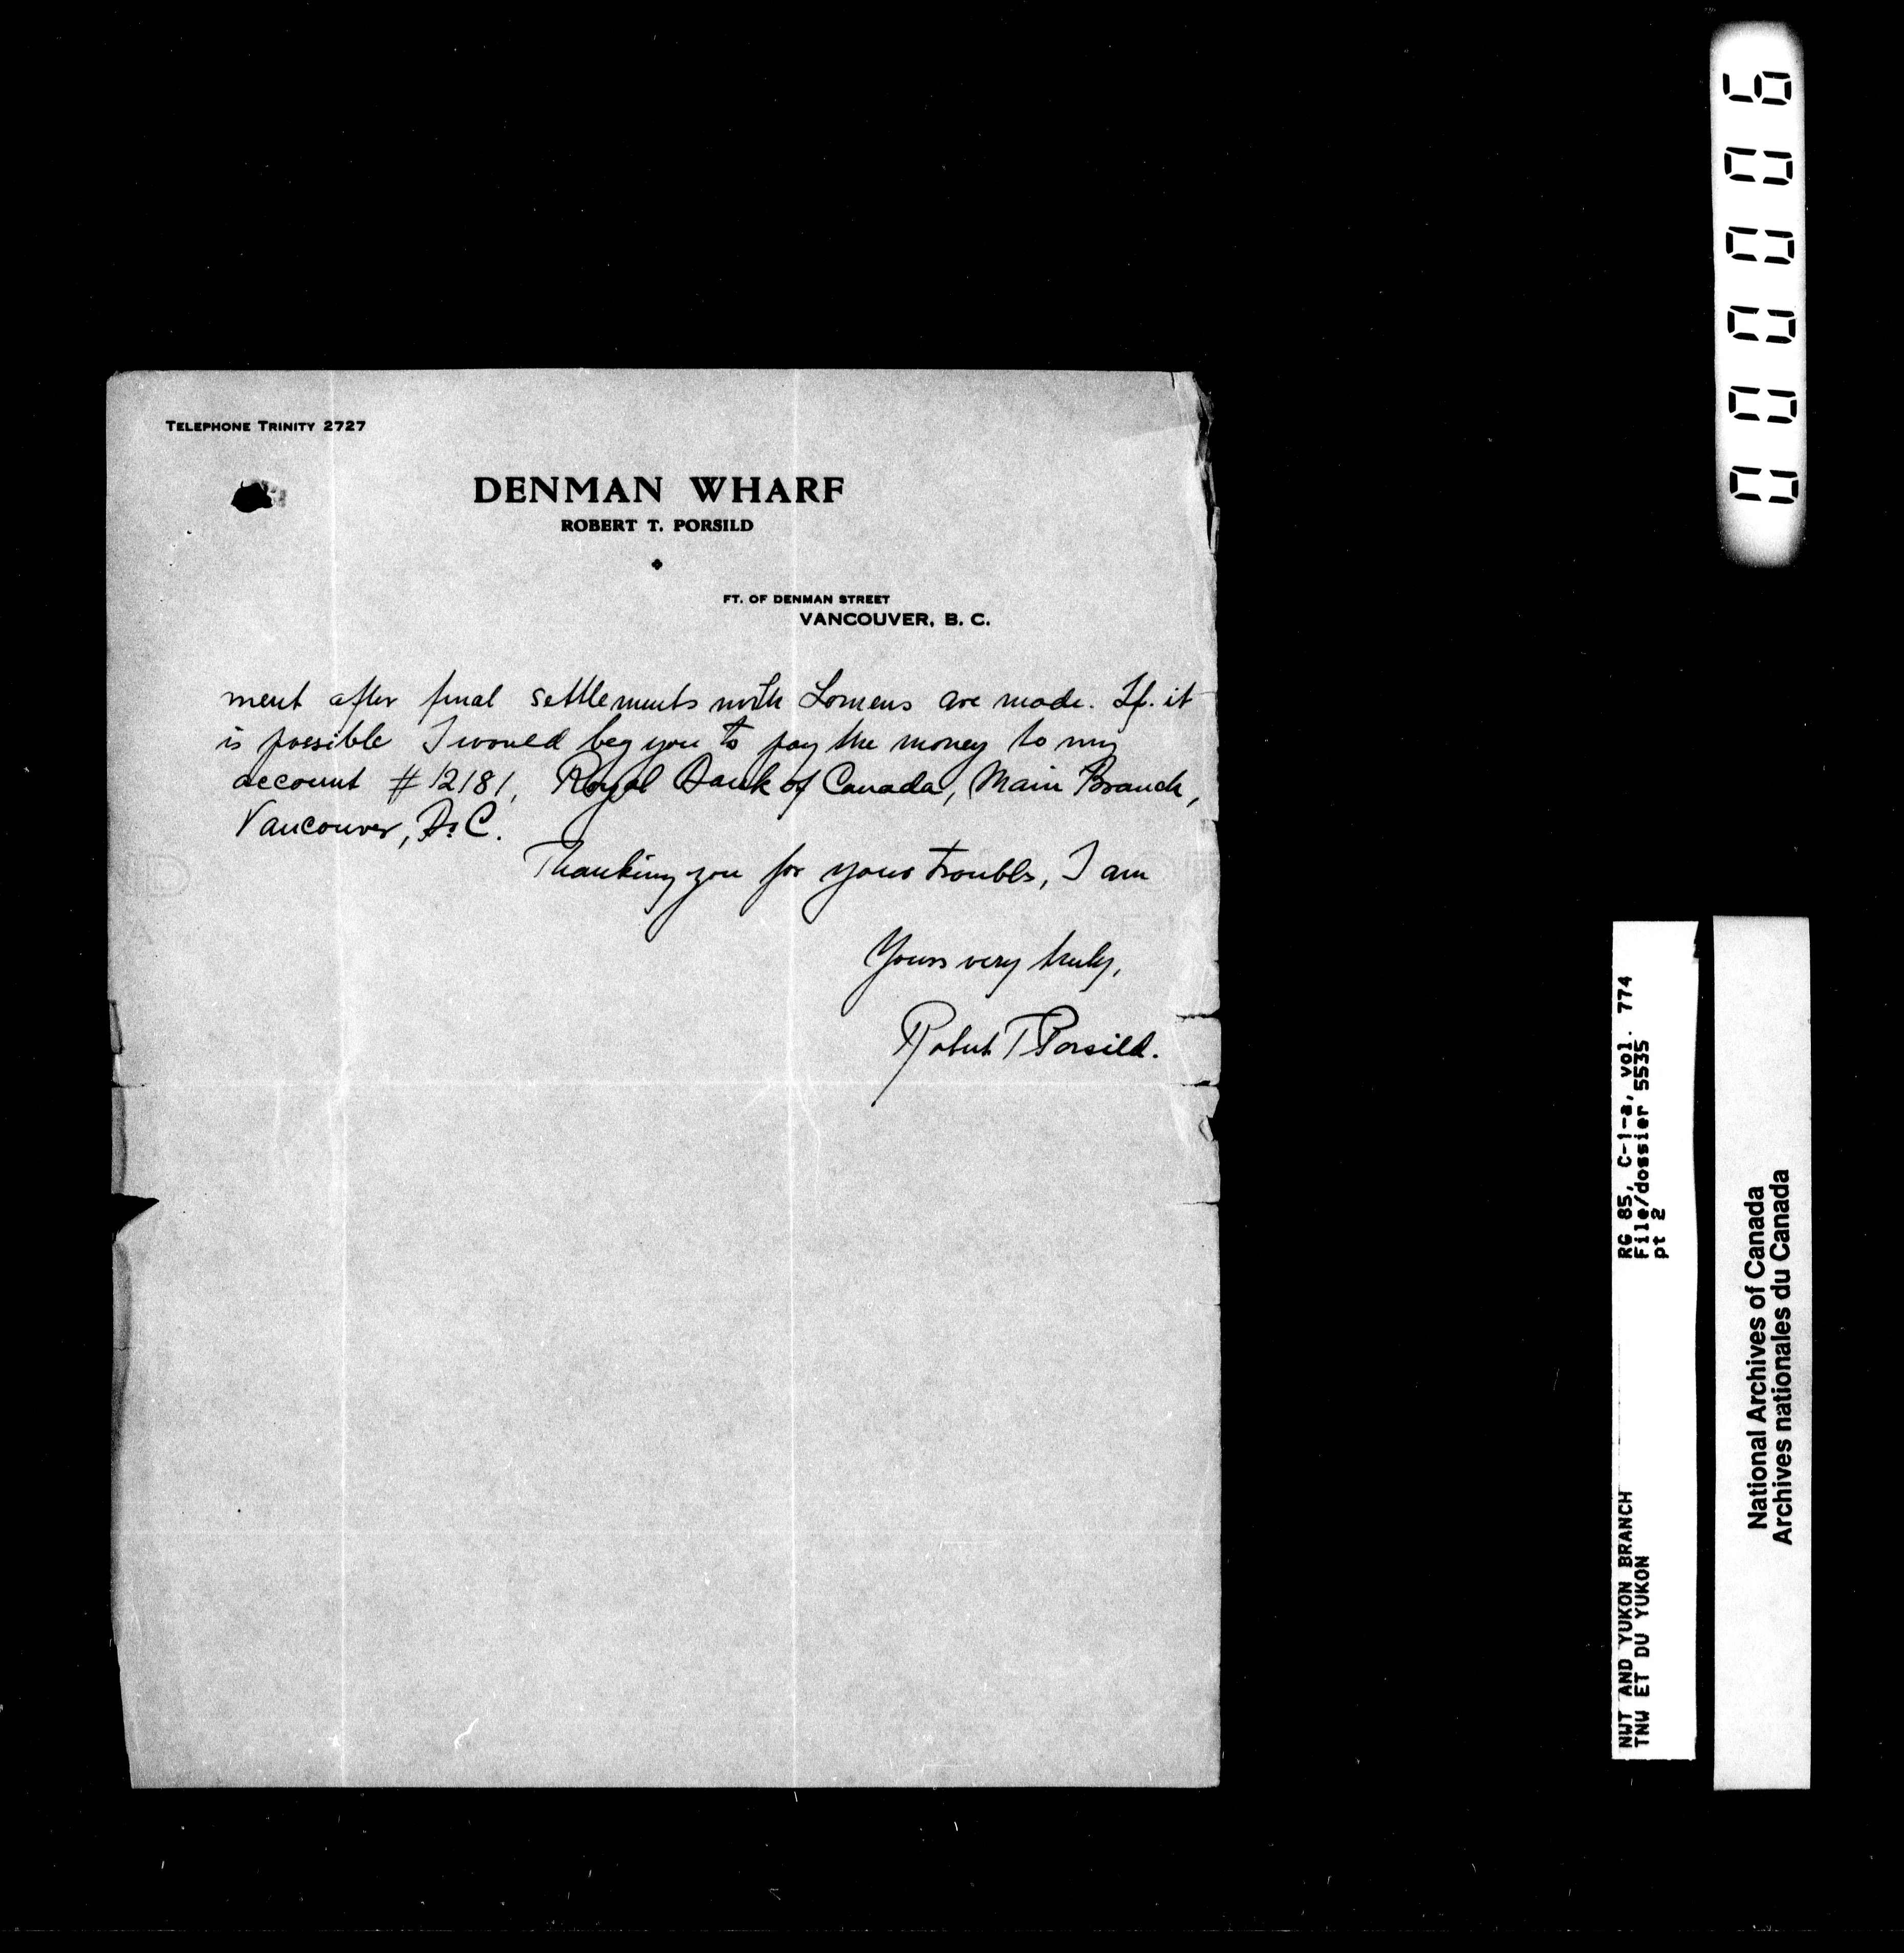 TELEPHONE TRINITY 2727
DENMAN WHARF
ROBERT T. PORSILD
FT. OF DENMAN STREET
VANCOUVER, B. C.
ment after final settlements with Lomens are made. If. it
is possible I would beg you to pay the money to my
account #12181, Royal Bank of Canada, Main Branch,
Vancouver, B.C.
Thanking you for your trouble, I am
Yours very truly,
Robert T Porsild.
000006
RG 85, C-1-a, vol. 774
File/dossier 5535
pt 2
NWT AND YUKON BRANCH
TNW ET DU YUKON
National Archives of Canada
Archives nationales du Canada